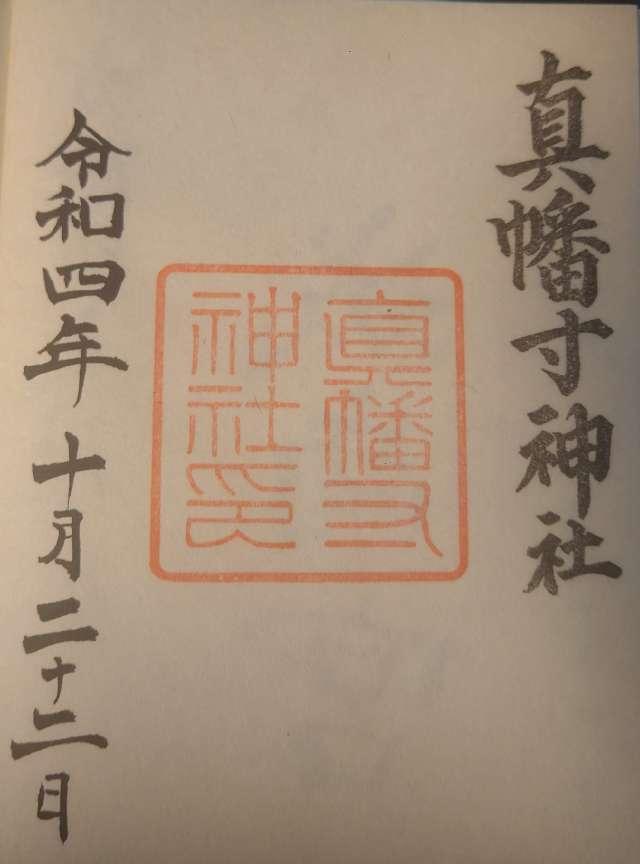 真幡寸神社
眞幡寸
神社印
令和四年十月二十二日